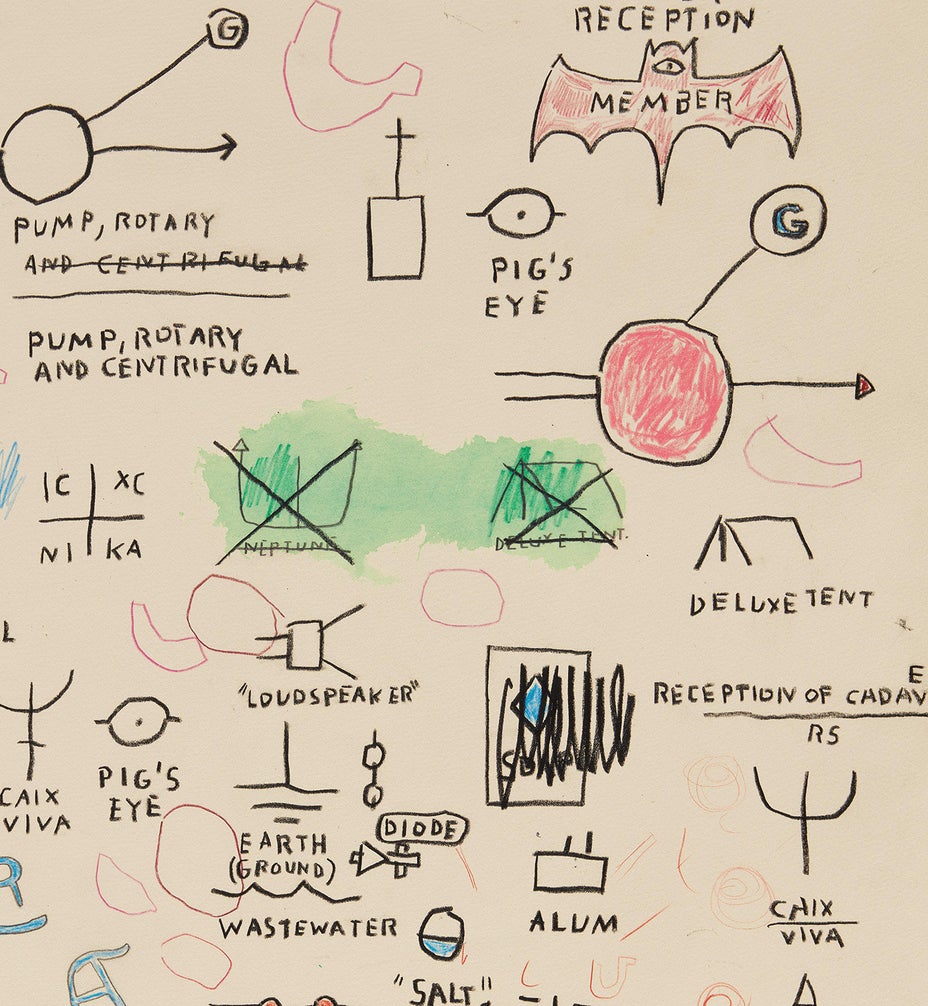 RECEPTION
G
MEMBER
G
PUMP, ROTARY
AND CENTRIFUGAL
PIG'S
EYE
PUMP, ROTARY
AND CENTRIFUGAL
IC XC
NI KA
NEPTUNE
DELUXE TENT.
DELUXE TENT
L
"LOUDSPEAKER"
E
RECEPTION OF CADAV
RS
PIG'S
EYE
CAIX
VIVA
DIODE
EARTH
(GROUND)
WASTEWATER
ALUM
CAIX
VIVA
R
"SALT"